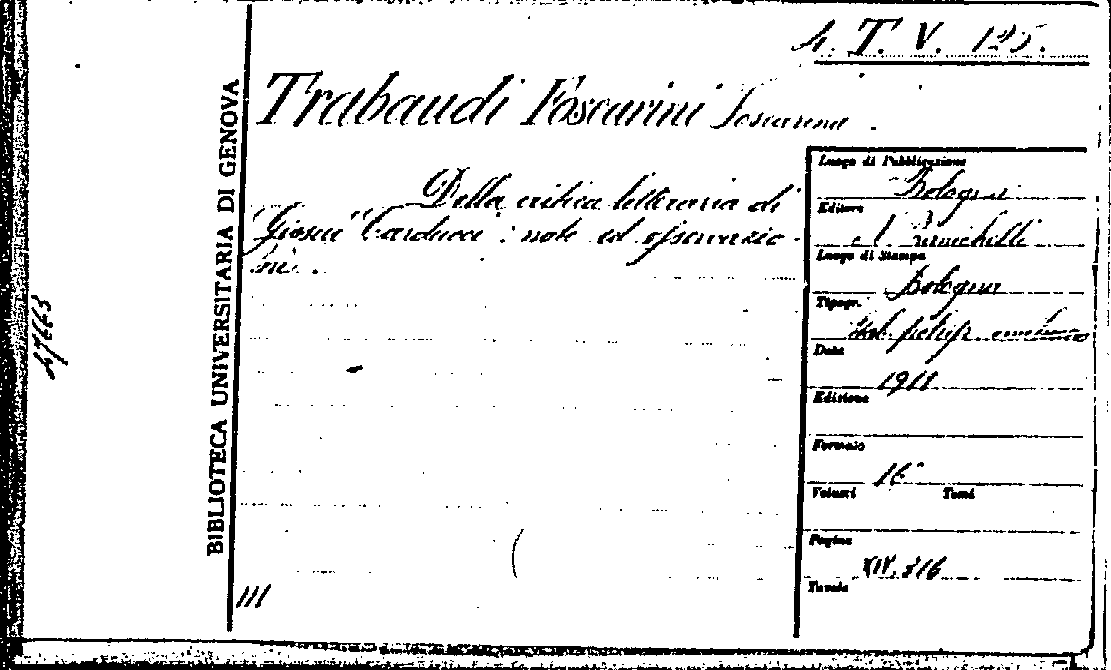 4. T. V. 125.
Trabaudi Foscarini Foscarina.
Della critica letteraria di
Giosuè Carducci: note ed osservazio-
ni.
BIBLIOTECA UNIVERSITARIA DI GENOVA
47663
III
Luogo di Pubblicazione
Bologna
Editore
N. Zanichelli
Luogo di Stampa
Bologna
Tipogr.
Data
1911
Edizione
Formato
16°
Volumi Tomi
Pagine
XIV, 316
Tavole